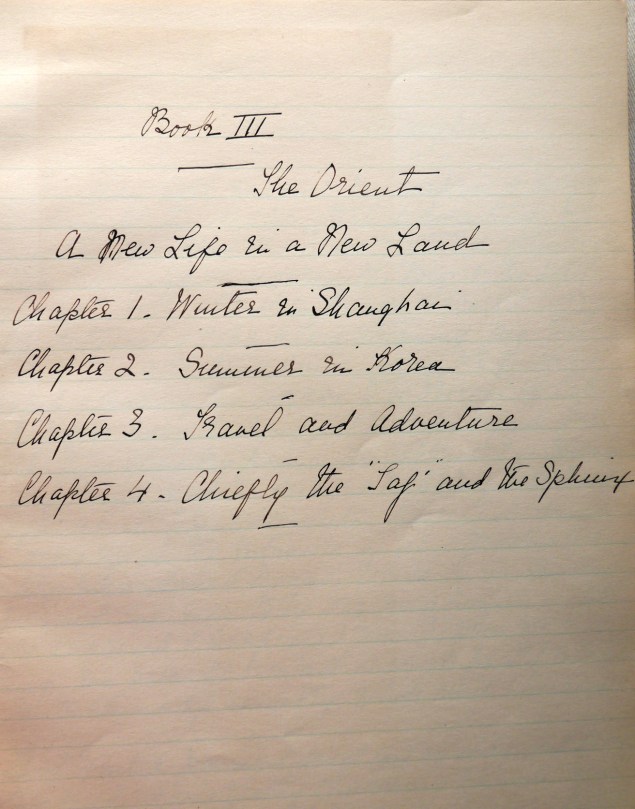 Book III
The Orient
A New Life in a New Land
Chapter 1. Winter in Shanghai
Chapter 2. Summer in Korea
Chapter 3. Travel and Adventure
Chapter 4 - Chiefly the "Taj" and the Sphinx